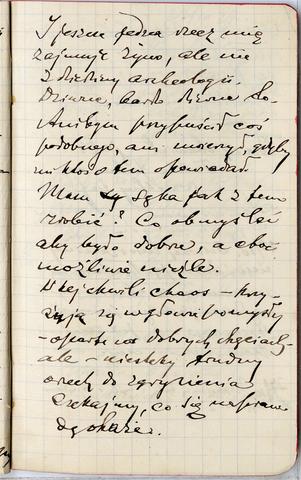 I jeszcze jedna rzecz mię
zajmuje żywo, ale nie
z dziedziny archeologii.
Dziwne, bardzo dziwne. Do-
prawdy nikbym przypuścił coś
podobnego, ani uwierzył, gdyby
mi ktoś o tem opowiadał
Mam sęka jak z tem
zrobić? Co obmyśleć
aby było dobrze, a choć
możliwie nieźle.
W tej chwili chaos – krzy-
żują się w głowie pomysły
– oparte na dobrych chęciach –
ale – niestety trudny
orzech do zgryzienia
Czekajmy, co się na
dgokaże.